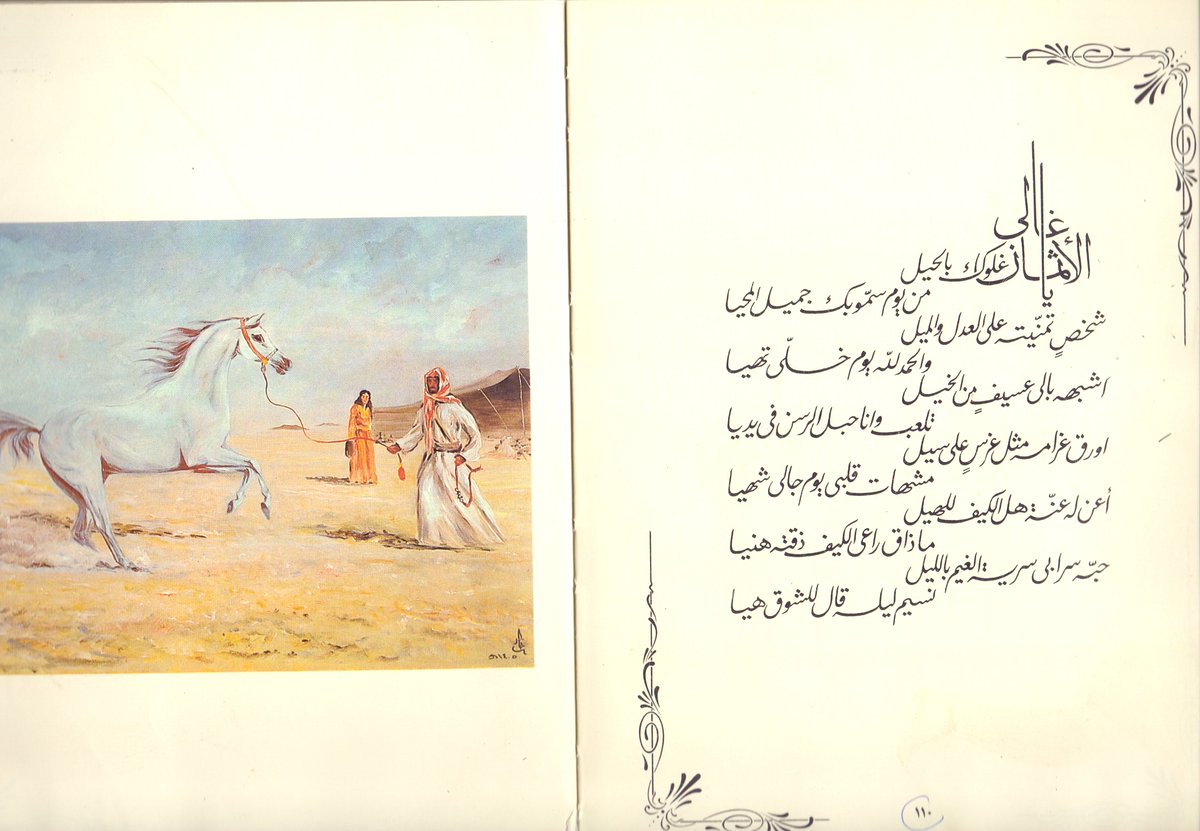 يا غالي الأثمان غلوك بالحيل
من يوم سمّوبك جميل المحيا
شخصٍ تمنّيته على العدل والميل
والحمد للّه يوم خلّى تهيا
اشبهه بالى عسيفٍ من الخيل
تلعب وانا حبل الرسن فى يديا
اورق غرامه مثل غرسٍ على سيل
مشهات قلبى يوم جالى شهيا
أعن له عنّة هل الكيف للهيل
ما ذاق راعى الكيف ذقته هنيا
حبّه سرابى سرية الغيم بالليل
نسيم ليله قال للشوق هيا
١١٠